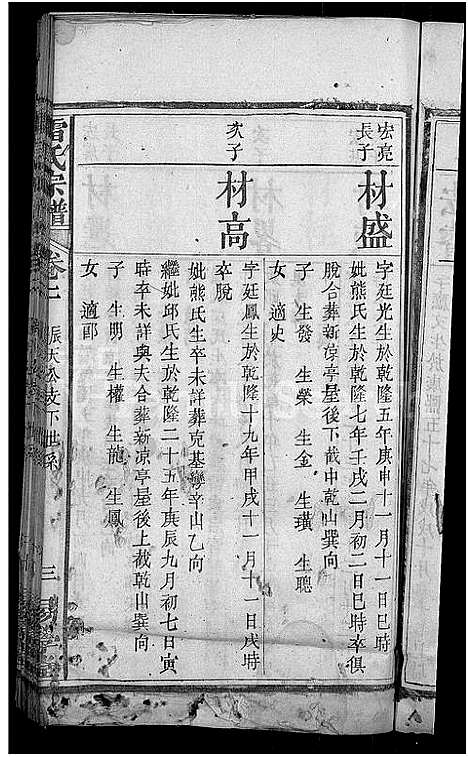 宏亮長子
材盛
字廷光生於乾隆五年庚申十一月十一日巳時
妣熊氏生於乾隆七年壬戌二月初二日巳時卒俱
脫合葬新凉亭屋後下截申乾山巽向
子 生發 生榮 生金 生璜 生聰
女 適史
次子
材高
字廷鳳生於乾隆十九年甲戌十一月十一日戌時
卒脫
妣熊氏生卒未詳葬克基壪辛山乙向
繼妣邱氏生於乾隆二十五年庚辰九月初七日寅
時卒未詳與夫合葬新凉亭屋後上截乾山巽向
子 生明 生權 生龍 生鳳
女 適郘
雷氏宗譜
卷十一
振天公支下世系
三